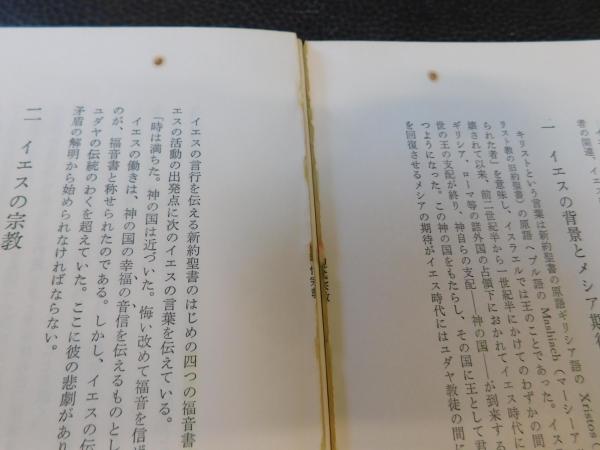 者の関連、イエ
一 イエスの背景とメシア期待
キリストという言葉は新約聖書の原語ギリシア語の Xristos
リスト教の旧約聖書）の原語ヘブル語の Mashiach（マーシーアハ
られた者」を意味し、イスラエルでは王のことであった。イス
壊されて以来、前二世紀半から一世紀半にかけてのわずかの間
ギリシア、ローマ等の諸外国の占領下におかれてイエス時代に
世の王の支配が終り、神自らの支配――神の国――が到来する
つようになった。この神の国をもたらし、その国に王として君
を回復させるメシアの期待がイエス時代にはユダヤ教徒の間に
イエスの言行を伝える新約聖書のはじめの四つの福音書
エスの活動の出発点に次のイエスの言葉を伝えている。
「時は満ちた。神の国は近づいた。悔い改めて福音を信
イエスの働きは、神の国の幸福の音信を伝えるものとし
のが、福音書と称せられたのである。しかし、イエスの伝
ユダヤの伝統のわくを超えていた。ここに彼の悲劇があり
矛盾の解明から始められなければならない。
二 イエスの宗教